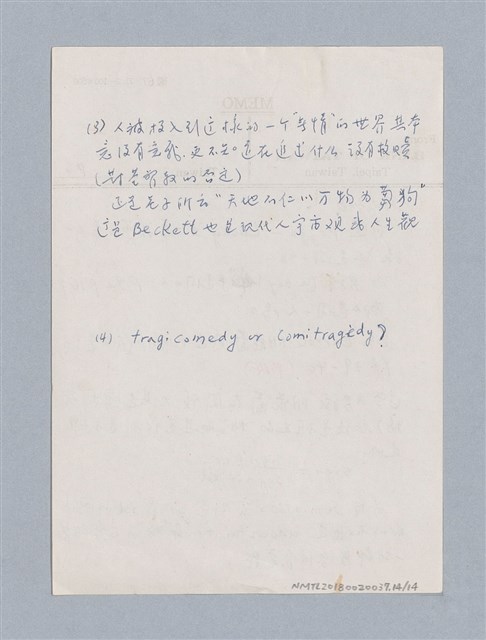 (3) 人被投入到这樣的一个"無情"的世界 其本
意沒有意義,更不知道在追求什么 沒有救贖
(对基督教的否定)
这是老子所云"天地不仁以万物为芻狗"
这是 Beckett 也是現代人宇宙观或人生觀
(4) tragicomedy or Comitragedy?
NMTL20180020037,14/14
MEMO